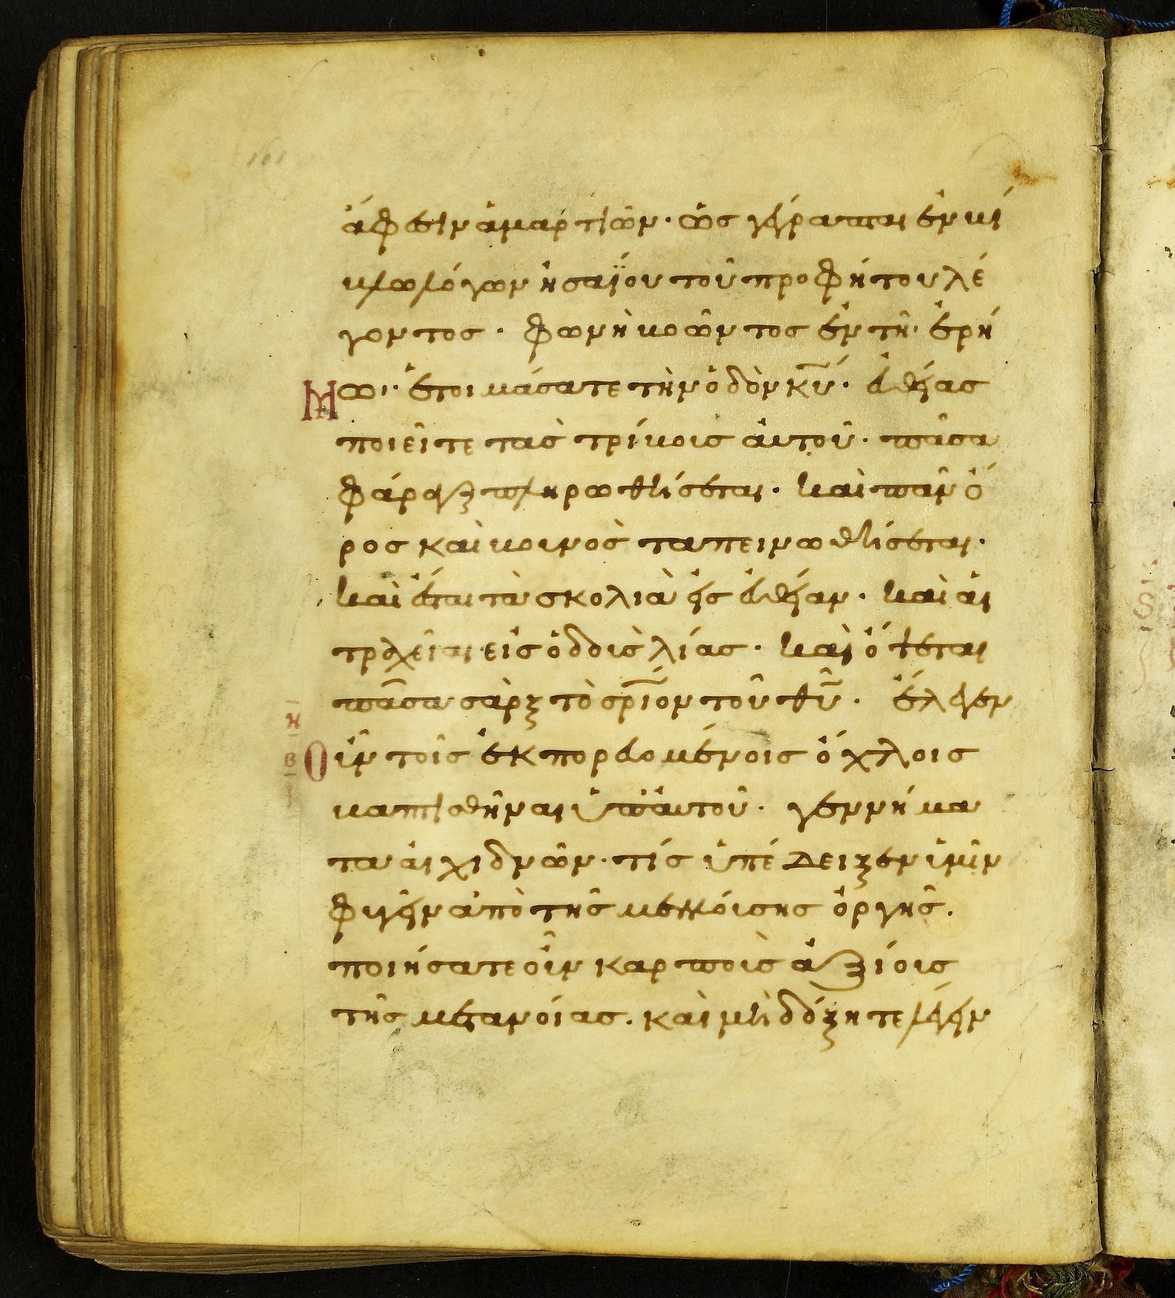 ἄφεσιν ἁμαρτιῶν· ὡς γέγραπται ἐν κύ
κλω λόγων ἡσαΐου τοῦ προφήτου λέ
γοντος· φωνὴ βοῶντος ἐν τῆ ἐρή
Μω· ἑτοιμάσατε τὴν ὁδὸν κ̅υ̅· ἐυθείας
ποιεῖτε τὰς τρίβους ἀυτοῦ· πᾶσα
φάραγξ πληρωθήσεται· καὶ πᾶν ὄ
ρος καὶ βουνὸς ταπεινωθήσεται·
καὶ ἔσται τὰ σκολιὰ εἰς ἐυθείαν· καὶ αἱ
τραχεῖαι εἰς ὁδοὺς λείας· καὶ ὄψεται
πᾶσα σὰρξ τὸ σ̅ρ̅ι̅ον τοῦ θ̅υ̅· ἔλεγεν
η
β
Οὖν τοῖς ἐκπορευομένοις ὄχλοις
βαπτισθῆναι ὑπ' ἀυτοῦ· γεννήμα
τα ἐχιδνῶν· τίς ὑπέδειξεν ὑμῖν
φυγεῖν ἀπὸ τῆς μελλούσης ὀργῆς.
ποιήσατε οὖν καρποὺς ἀξίους
τῆς μετανοίας. καὶ μὴ δόξητε λέγειν